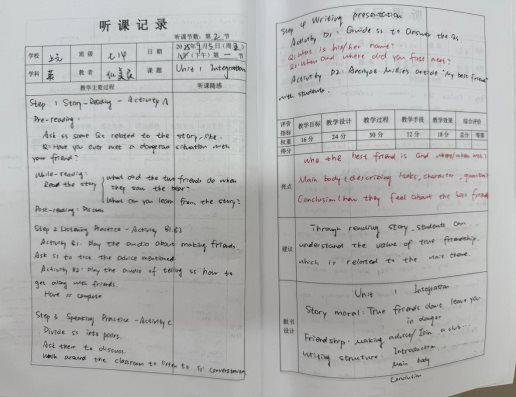 听课记录
听课节数：第 2 节
学校
班级
日期
2025年9月5日（周五）
（下午）第一节
学科 英
教者
课题 Unit 1 Integration
教学主要过程
听课随感
Step 1 Story-Reading - Activity A
Pre-reading:
Ask ss some Qs related to the story, like
Q: Have you ever met a dangerous situation with
your friend?
While-reading:
Read the story
What did the two friends do when
they saw the bear?
What can you learn from the story?
Post-reading: Discuss
Step 2 Listening Practice - Activity B1, B2
Activity B1: Play the audio about making friends.
Ask ss to tick the advice mentioned.
Activity B2: Play the audio of telling ss how to
get along with friends.
Have ss complete
Step 3 Speaking Practice - Activity C
Divide ss into pairs.
Ask them to discuss.
Walk around the classroom to listen to Ss' conversations
Step 4 Writing presentation
Activity D1: Guide ss to Answer the Qs
Q: Who is his/her name?
Q: When and where did you first meet?
Activity D2: Analyze Millie's article "My best friend"
with students.
评价指标
教学目标
教学设计
教学过程
教学手段
教学效果
综合评价
权重
16分
24分
30分
12分
18分
总分
等第
得分
亮点
who the best friend is and where/when met
Main body (describing looks, character,
Conclusion (how they feel about the best friend
建议
Through reading story, students can
understand the value of true friendship,
which is related to the unit theme.
板书设计
Unit 1 Integration
Story moral: True friends don't leave you
in danger
Friendship: making advice / Join a club...
Writing structure: Introduction
Main body
Conclusion